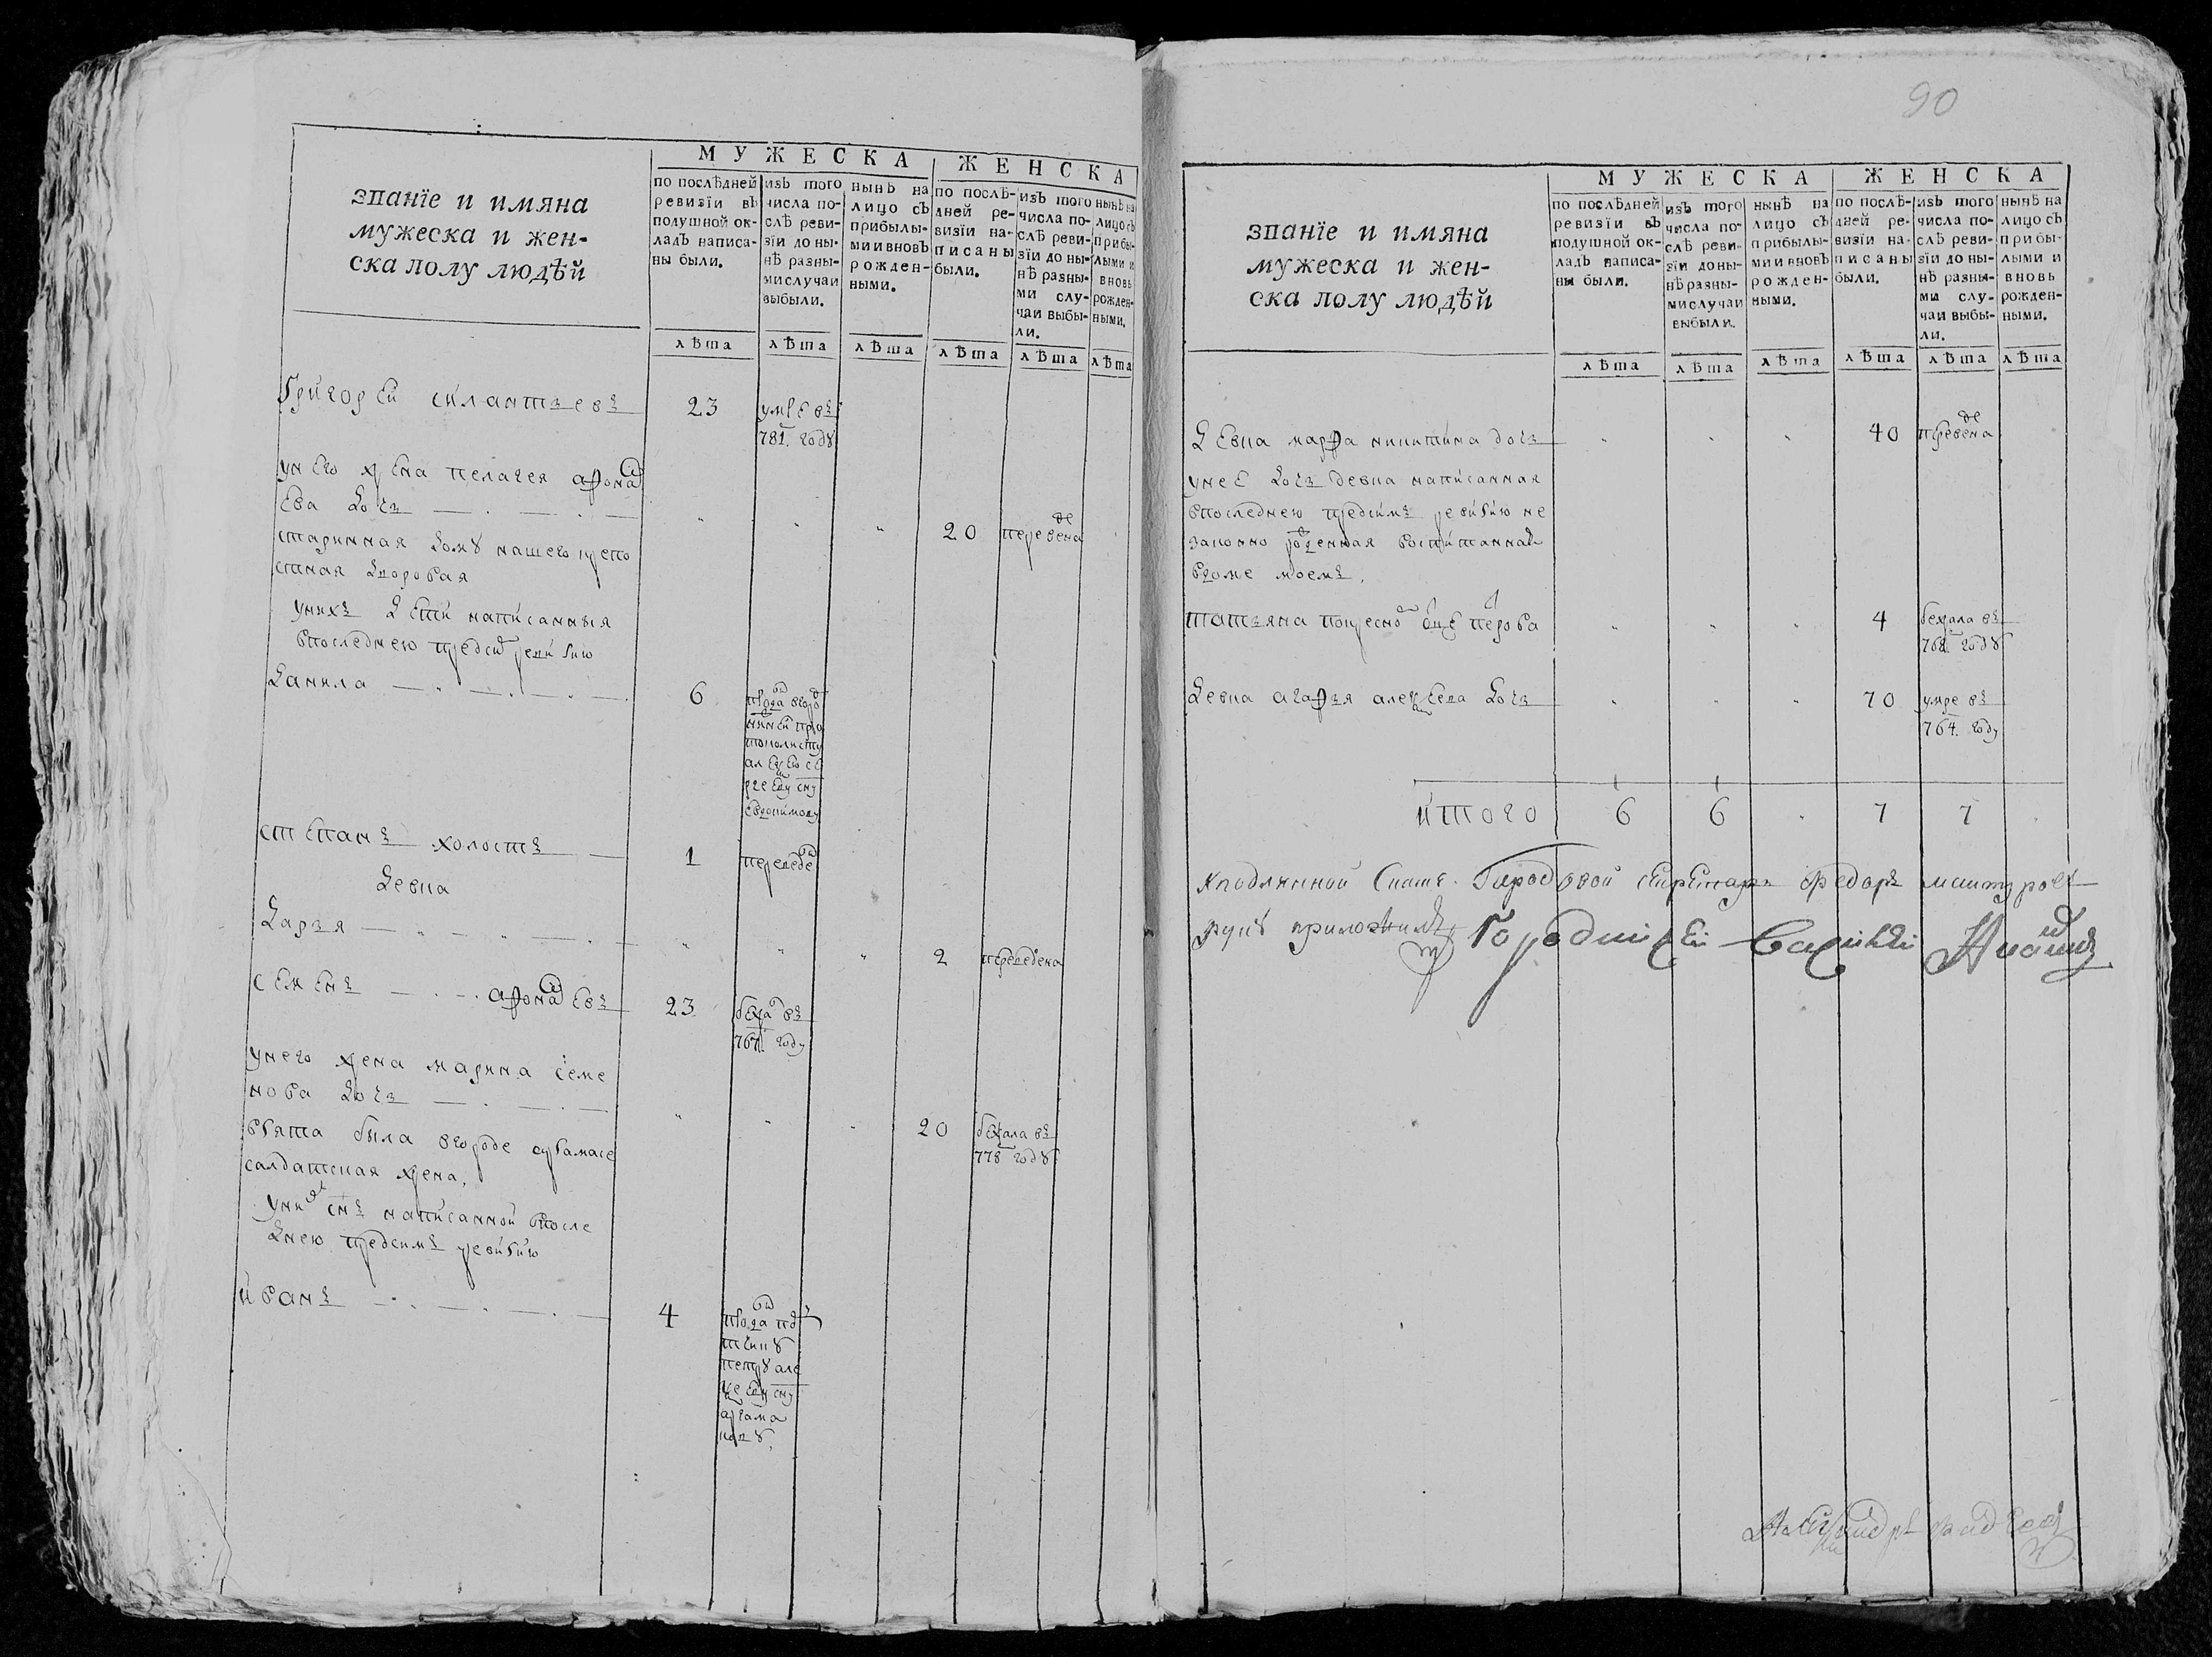 МУЖЕСКА
ЖЕНСКА
званїе и имяна
мужеска и жен-
ска полу людѣй
по послѣдней
ревизїи въ
подушной ок-
ладъ написа-
ны были.
изъ того
числа по-
слѣ реви-
зїи до ны-
нѣ разны-
ми случаи
выбыли.
нынѣ на
лицо съ
прибылы-
ми и вновъ
рожден-
ными.
по послѣ-
дней ре-
визїи на-
писаны
были.
изъ того
числа по-
слѣ реви-
зїи до ны-
нѣ разны-
ми слу-
чаи выбы-
ли.
нынѣ на
лицо съ
прибы-
лыми и
вновь
рожден-
ными.
лѣта лѣта лѣта лѣта лѣта лѣта
Григорей 23 умре въ
781. году
у него жена пелагея афонас
ева дочь
20 переведена
старинная дому нашего крепо
стная дворовая
у них дети написанныя
в последнею пред сим ревизию
Данила 6
степанъ холостъ 1 переведен
девка
Дарья 2 переведена
семенъ афонасевъ 23 бежал въ
767. году
у него жена марина семе
нова дочь
20 бежала въ
778 году
взята была в городе арзамасе
салдатская жена,
у них сын написанной в после
днею пред симъ ревизию
иванъ 4
90
МУЖЕСКА
ЖЕНСКА
званїе и имяна
мужеска и жен-
ска полу людѣй
по послѣдней
ревизїи въ
подушной ок-
ладъ написа-
ны были.
изъ того
числа по-
слѣ реви-
зїи до ны-
нѣ разны-
ми случаи
выбыли.
нынѣ на
лицо съ
прибылы-
ми и вновъ
рожден-
ными.
по послѣ-
дней ре-
визїи на-
писаны
были.
изъ того
числа по-
слѣ реви-
зїи до ны-
нѣ разны-
ми слу-
чаи выбы-
ли.
нынѣ на
лицо съ
прибы-
лыми и
вновь
рожден-
ными.
лѣта лѣта лѣта лѣта лѣта лѣта
Девка марфа никитина дочь 40 переведена
у нее дочь девка написанная
в последнею пред симъ ревизию не
законно рожденная воспитанная
в доме моемъ,
татьяна 4 бежала въ
768. году
Девка агафья алексеева дочь 70 умре въ
764. году
итого 6 6 7 7
К подлинной Городовой секретарь федоръ
руку приложилъ Городничей